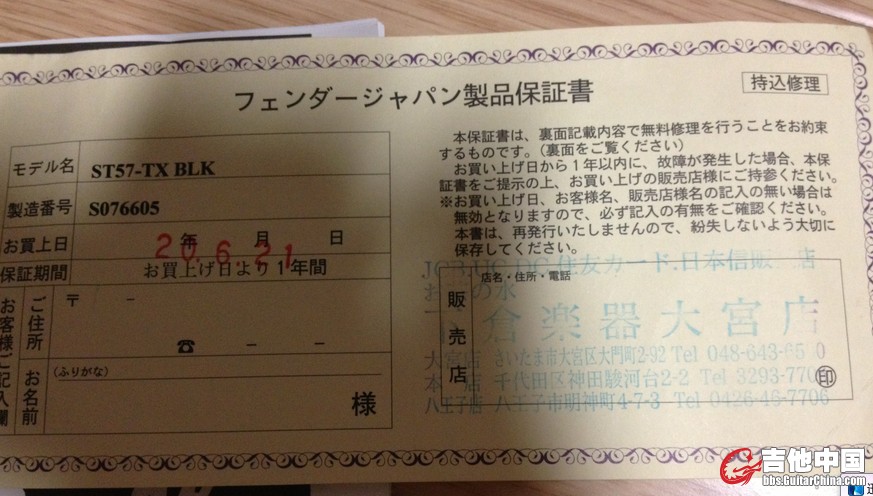 フェンダージャパン製品保証書
持込修理
モデル名 ST57-TX BLK
製造番号 S076605
お買上日 年 月 日
20.6.21
保証期間 お買上げ日より1年間
お客様ご記入欄
ご住所 〒 －
☎ － －
お名前 (ふりがな)
様
本保証書は、裏面記載内容で無料修理を行うことをお約束
するものです。(裏面をご覧ください)
お買い上げ日から1年以内に、故障が発生した場合、本保
証書をご提示の上、お買い上げの販売店様にご持参ください。
※お買い上げ日、お客様名、販売店様名の記入の無い場合は
無効となりますので、必ず記入の有無をご確認ください。
本書は、再発行いたしませんので、紛失しないよう大切に
保存してください。
販売店
店名・住所・電話
住友カード.日本信販 店
の水
倉楽器大宮店
大宮店 さいたま市大宮区大門町2-92 Tel 048-643-
本 店 千代田区神田駿河台2-2 Tel 3293-
八王子店 八王子市明神町4-7-3 Tel 0426-45-7706
印
吉他中国
bbs.GuitarChina.com